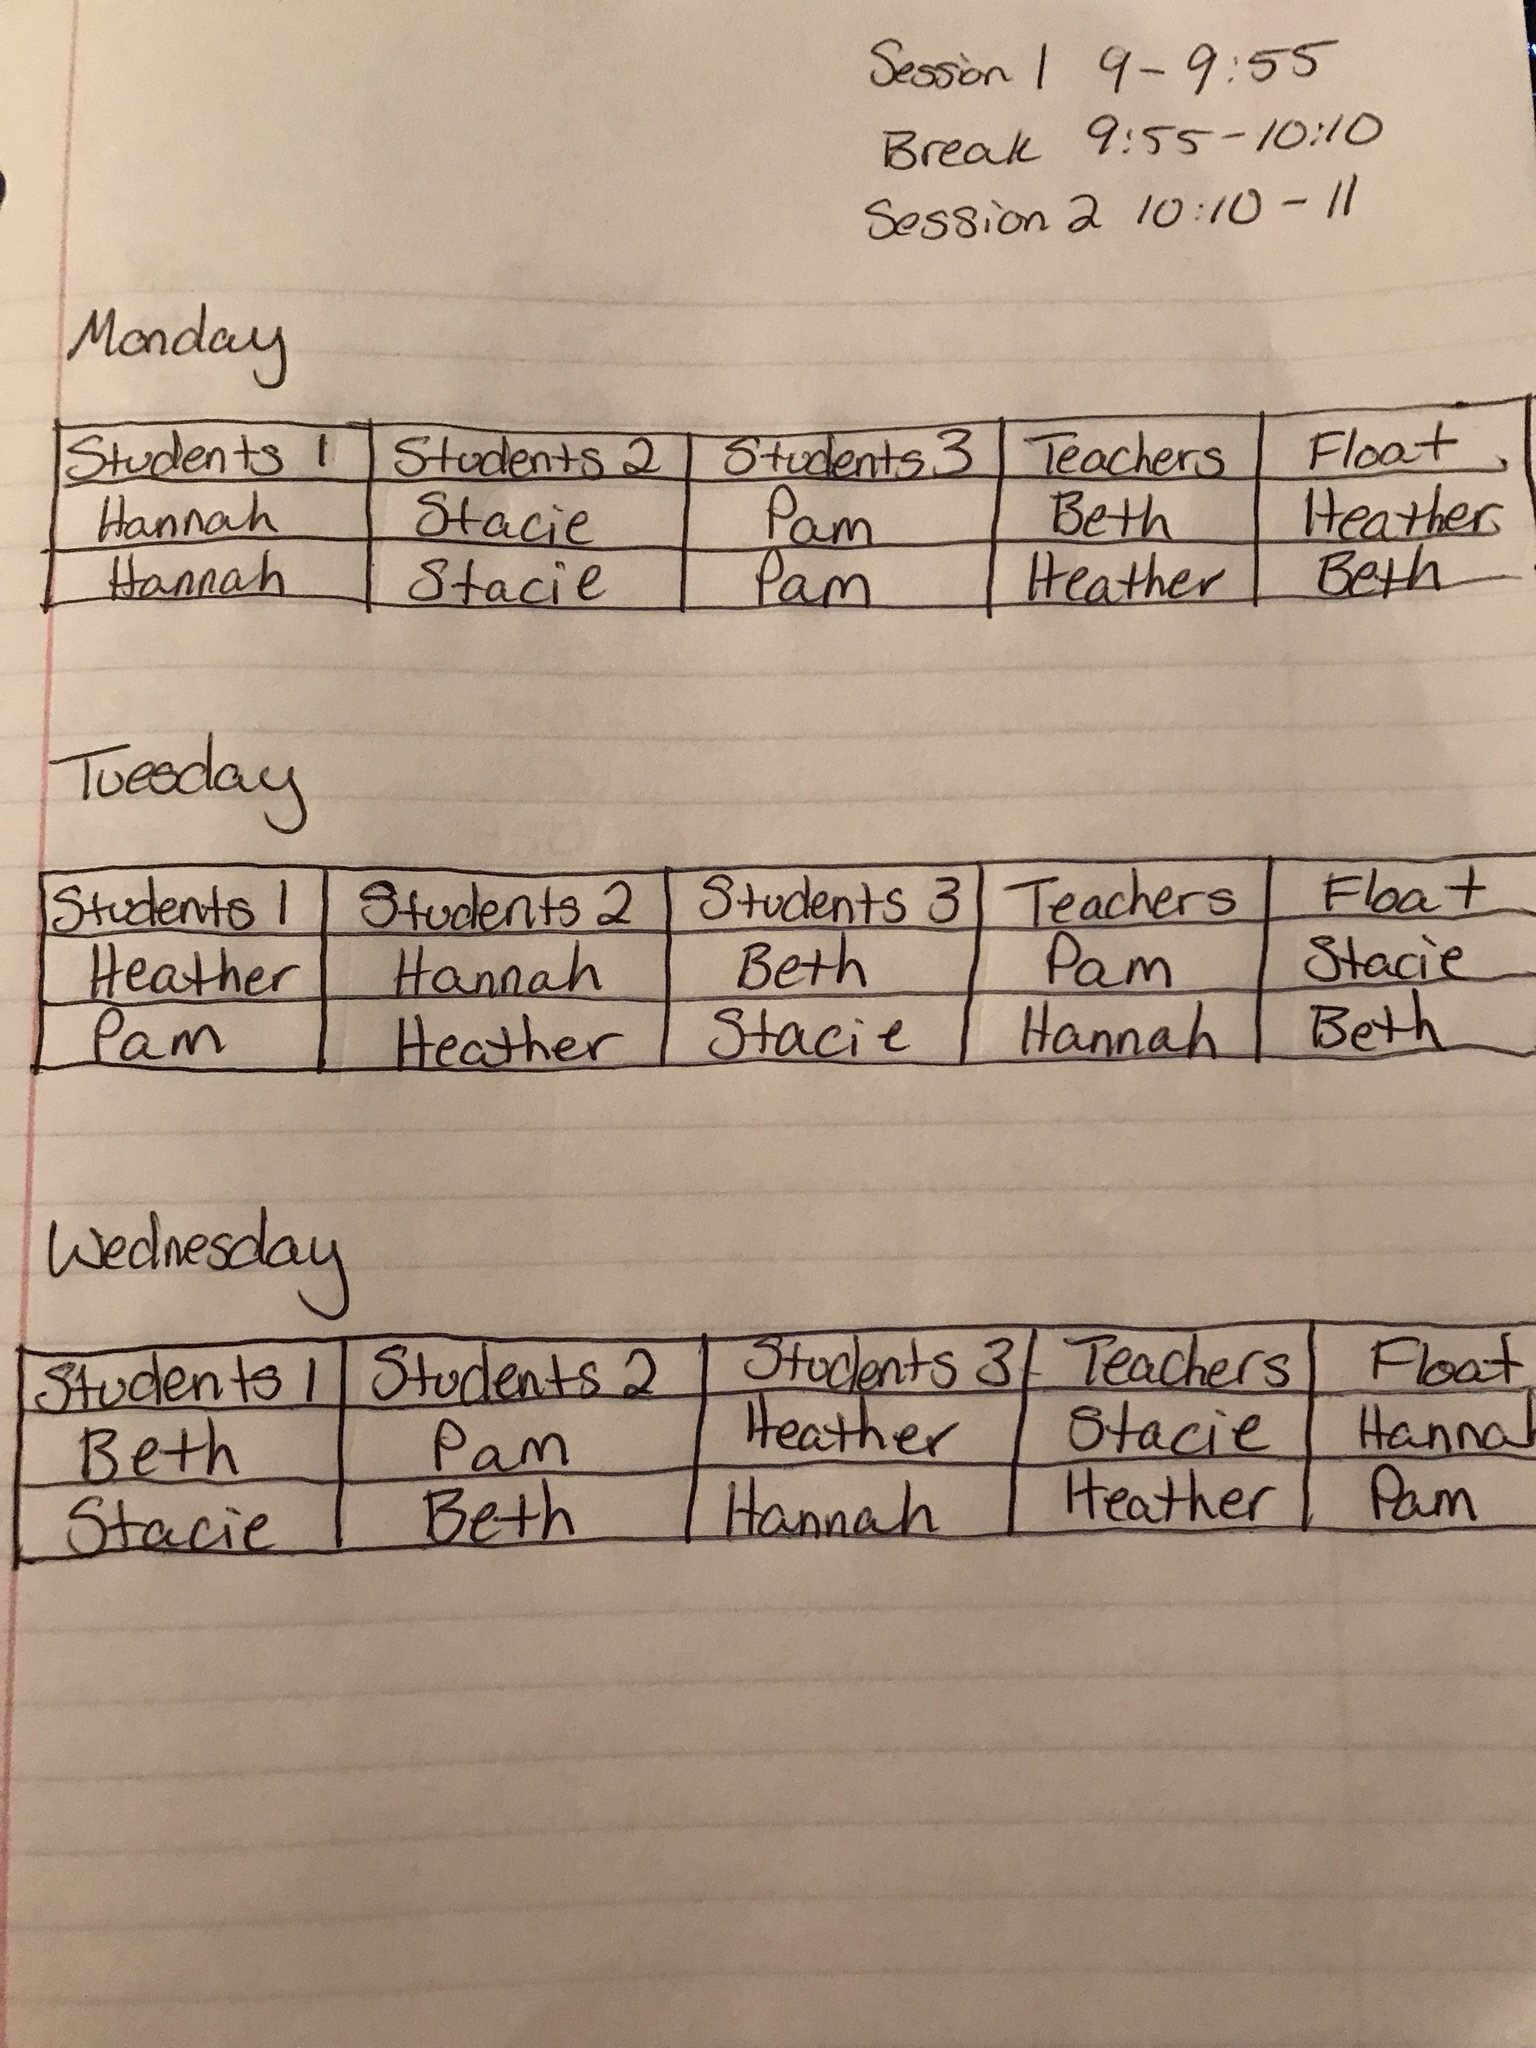 Session 1 9-9:55
Break 9:55-10:10
Session 2 10:10-11
Monday
Students 1 Students 2 Students 3 Teachers Float
Hannah Stacie Pam Beth Heather
Hannah Stacie Pam Heather Beth
Tuesday
Students 1 Students 2 Students 3 Teachers Float
Heather Hannah Beth Pam Stacie
Pam Heather Stacie Hannah Beth
Wednesday
Students 1 Students 2 Students 3 Teachers Float
Beth Pam Heather Stacie Hannah
Stacie Beth Hannah Heather Pam